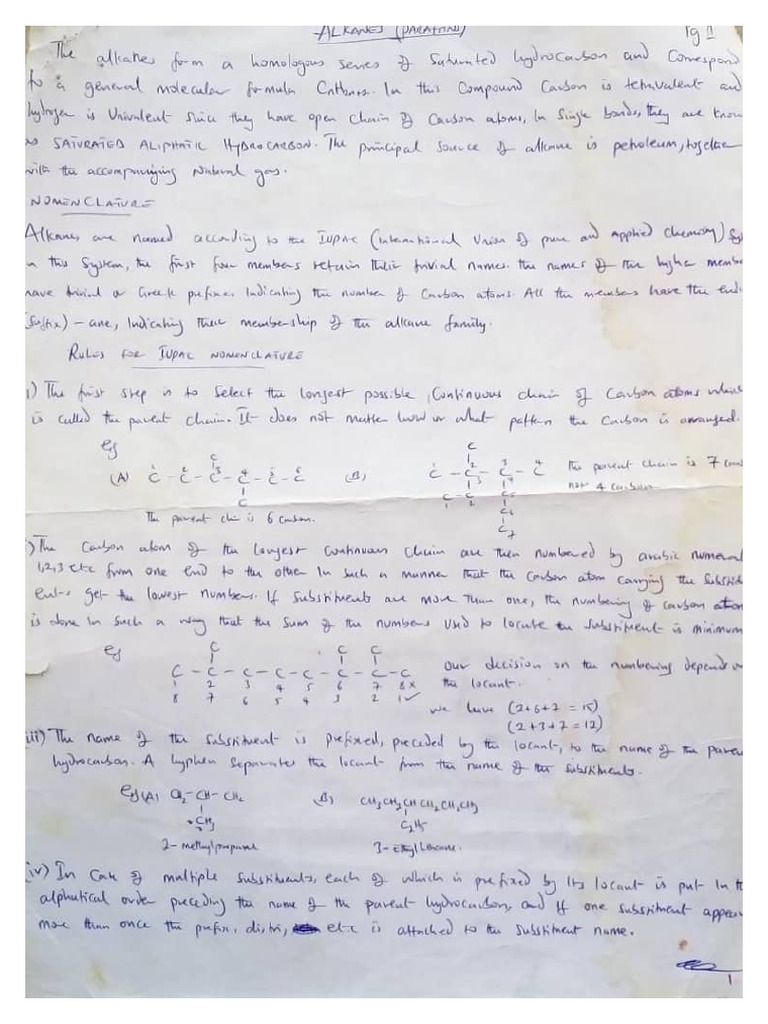 ALKANES (PARAFFIN) Pg 1
The alkanes form a homologous series of Saturated hydrocarbon and Correspond
to a general molecular formula CnH2n+2. In this Compound Carbon is tetravalent and
hydrogen is Univalent since they have open chain of Carbon atoms, In Single bonds, they are know
as SATURATED ALIPHATIC HYDROCARBON. The principal source of alkane is petroleum, together
with the accompanying Natural gas.
NOMENCLATURE
Alkanes are named according to the IUPAC (International Union of pure and Applied Chemistry) Sys
In this System, the first four members retain their trivial names. the names of the higher membe
have trivial or Greek prefixes Indicating the number of Carbon atoms. All the members have the endi
(Suffix) - ane, Indicating their membership of the alkane family.
RULES FOR IUPAC NOMENCLATURE
i) The first step is to Select the longest possible, Continuous chain of Carbon atoms which
is called the parent chain. It does not matter how or what pattern the Carbon is arranged.
eg
(A) C - C - C - C - C - C (B) C - C - C - C the parent chain is 7 carb
not 4 carbon
The parent chain is 6 carbon.
) The Carbon atom of the Longest Continuous Chain are then numbered by arabic numeral
1,2,3 etc from one end to the other In such a manner that the Carbon atom carrying the Substit
ents get the lowest numbers. If Substituents are more than one, the numbering of carbon atom
is done In such a way that the sum of the numbers Used to locate the Substituent is minimum
eg C C C
C - C - C - C - C - C - C - C our decision on the numbering depends on
1 2 3 4 5 6 7 8 x the locant.
8 7 6 5 4 3 2 1 ✓ we have (2+6+7 = 15)
(2+3+7 = 12)
iii) The name of the Substituent is prefixed, preceded by the locant, to the name of the paren
hydrocarbon. A hyphen Separates the locant from the name of the substituents.
eg (A) CH3 - CH - CH3 (B) CH3CH2CHCH2CH2CH3
CH3 C2H5
2 - methylpropane 3 - Ethyl hexane.
(iv) In Case of multiple Substituents, each of which is prefixed by Its locant is put In th
alphatical order preceding the name of the parent hydrocarbon, and If one substituent appear
more than once the prefix, di, tri, etc is attached to the Substituent name.
1